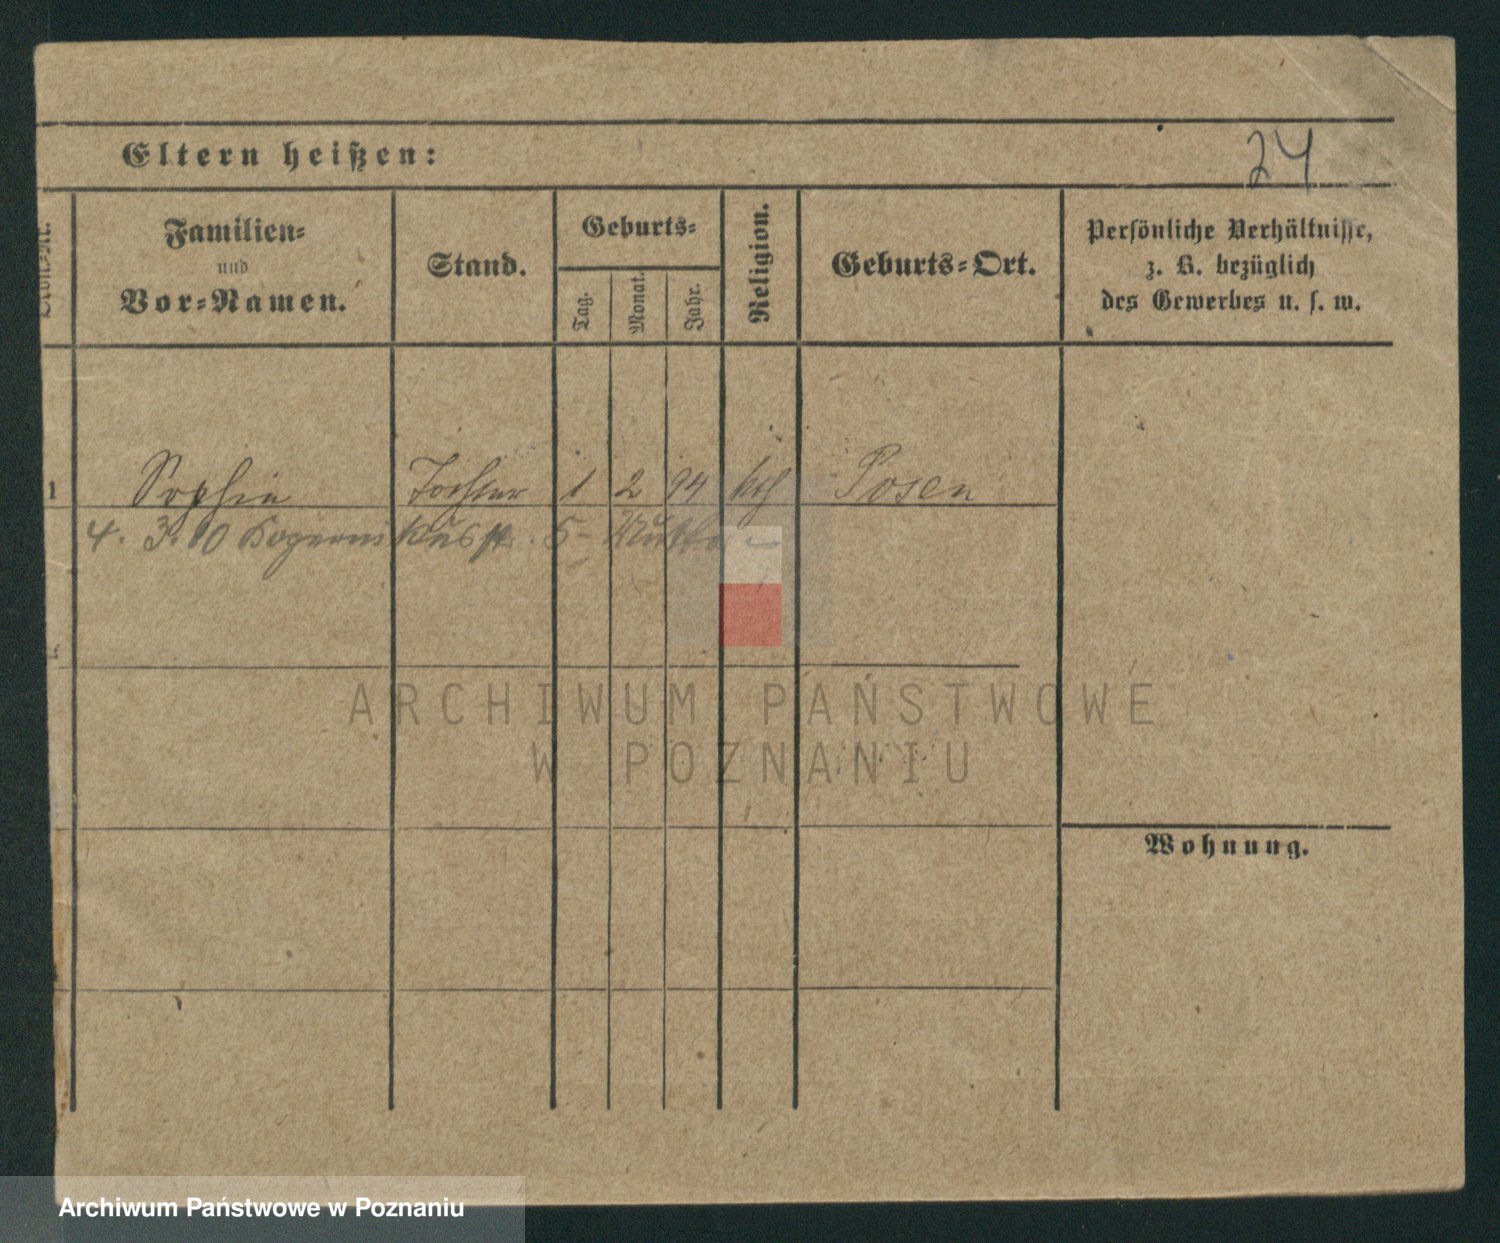 24
Eltern heißen:
Familien=
und
Vor=Namen.
Stand.
Geburts=
Tag.
Monat.
Jahr.
Religion.
Geburts=Ort.
Persönliche Verhältnisse,
z. B. bezüglich
des Gewerbes u. s. w.
1 Sophie Tochter 1 2 94 kth Posen
4. 3. 10 Kopernikusstr. 5 - Mutter -
ARCHIWUM PAŃSTWOWE
W POZNANIU
Wohnung.
Archiwum Państwowe w Poznaniu